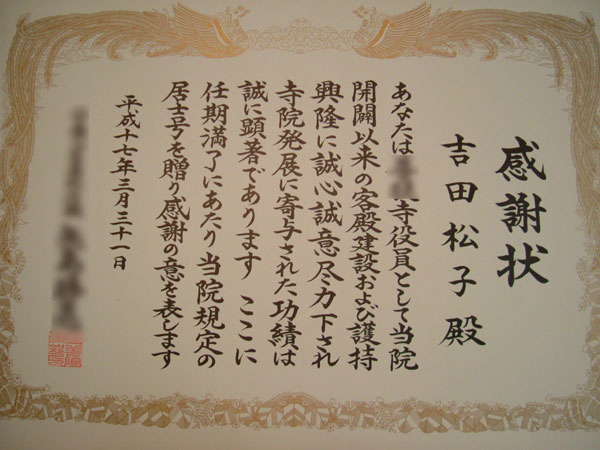 感謝状
吉田松子殿
あなたは 寺役員として当院
開闢以来の客殿建設および護持
興隆に誠心誠意尽力下され
寺院発展に寄与された功績は
誠に顕著であります ここに
任期満了にあたり当院規定の
居士号を贈り感謝の意を表します
平成十七年三月三十一日